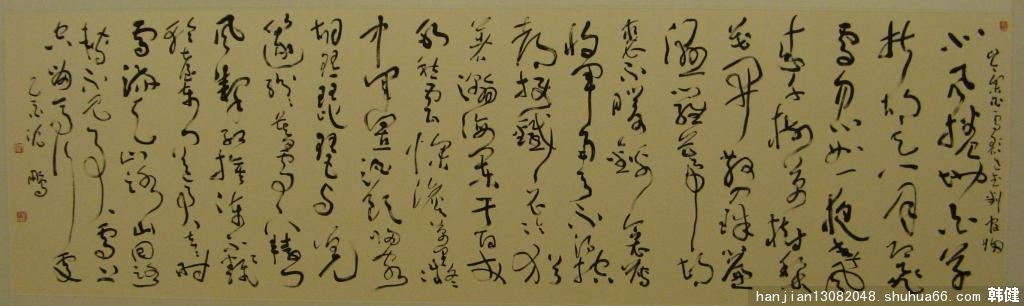 北风卷地白草
折胡天八月即飞
雪忽如一夜春风
来千树万树梨
花开散入珠帘
湿罗幕狐
裘不暖锦衾薄
将军角弓不得控
都护铁衣冷犹
著瀚海阑干百丈
冰愁云惨淡万里凝
中军置酒饮归客
胡琴琵琶与羌
笛纷纷暮雪下辕门
风掣红旗冻不翻
轮台东门送君去时
雪满天山路山回路
转不见君雪上
空留马行处
沈鹏
hanjian13082048. shuhua66.com 韩健